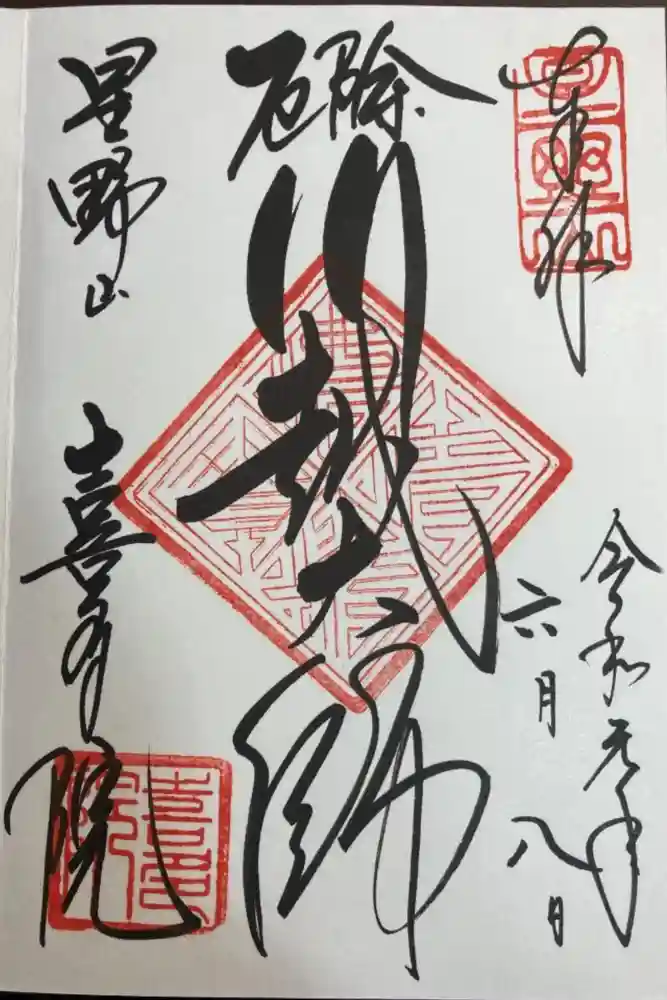 奉拝
令和元年
六月八日
厄除
川越大師
星野山
喜多院